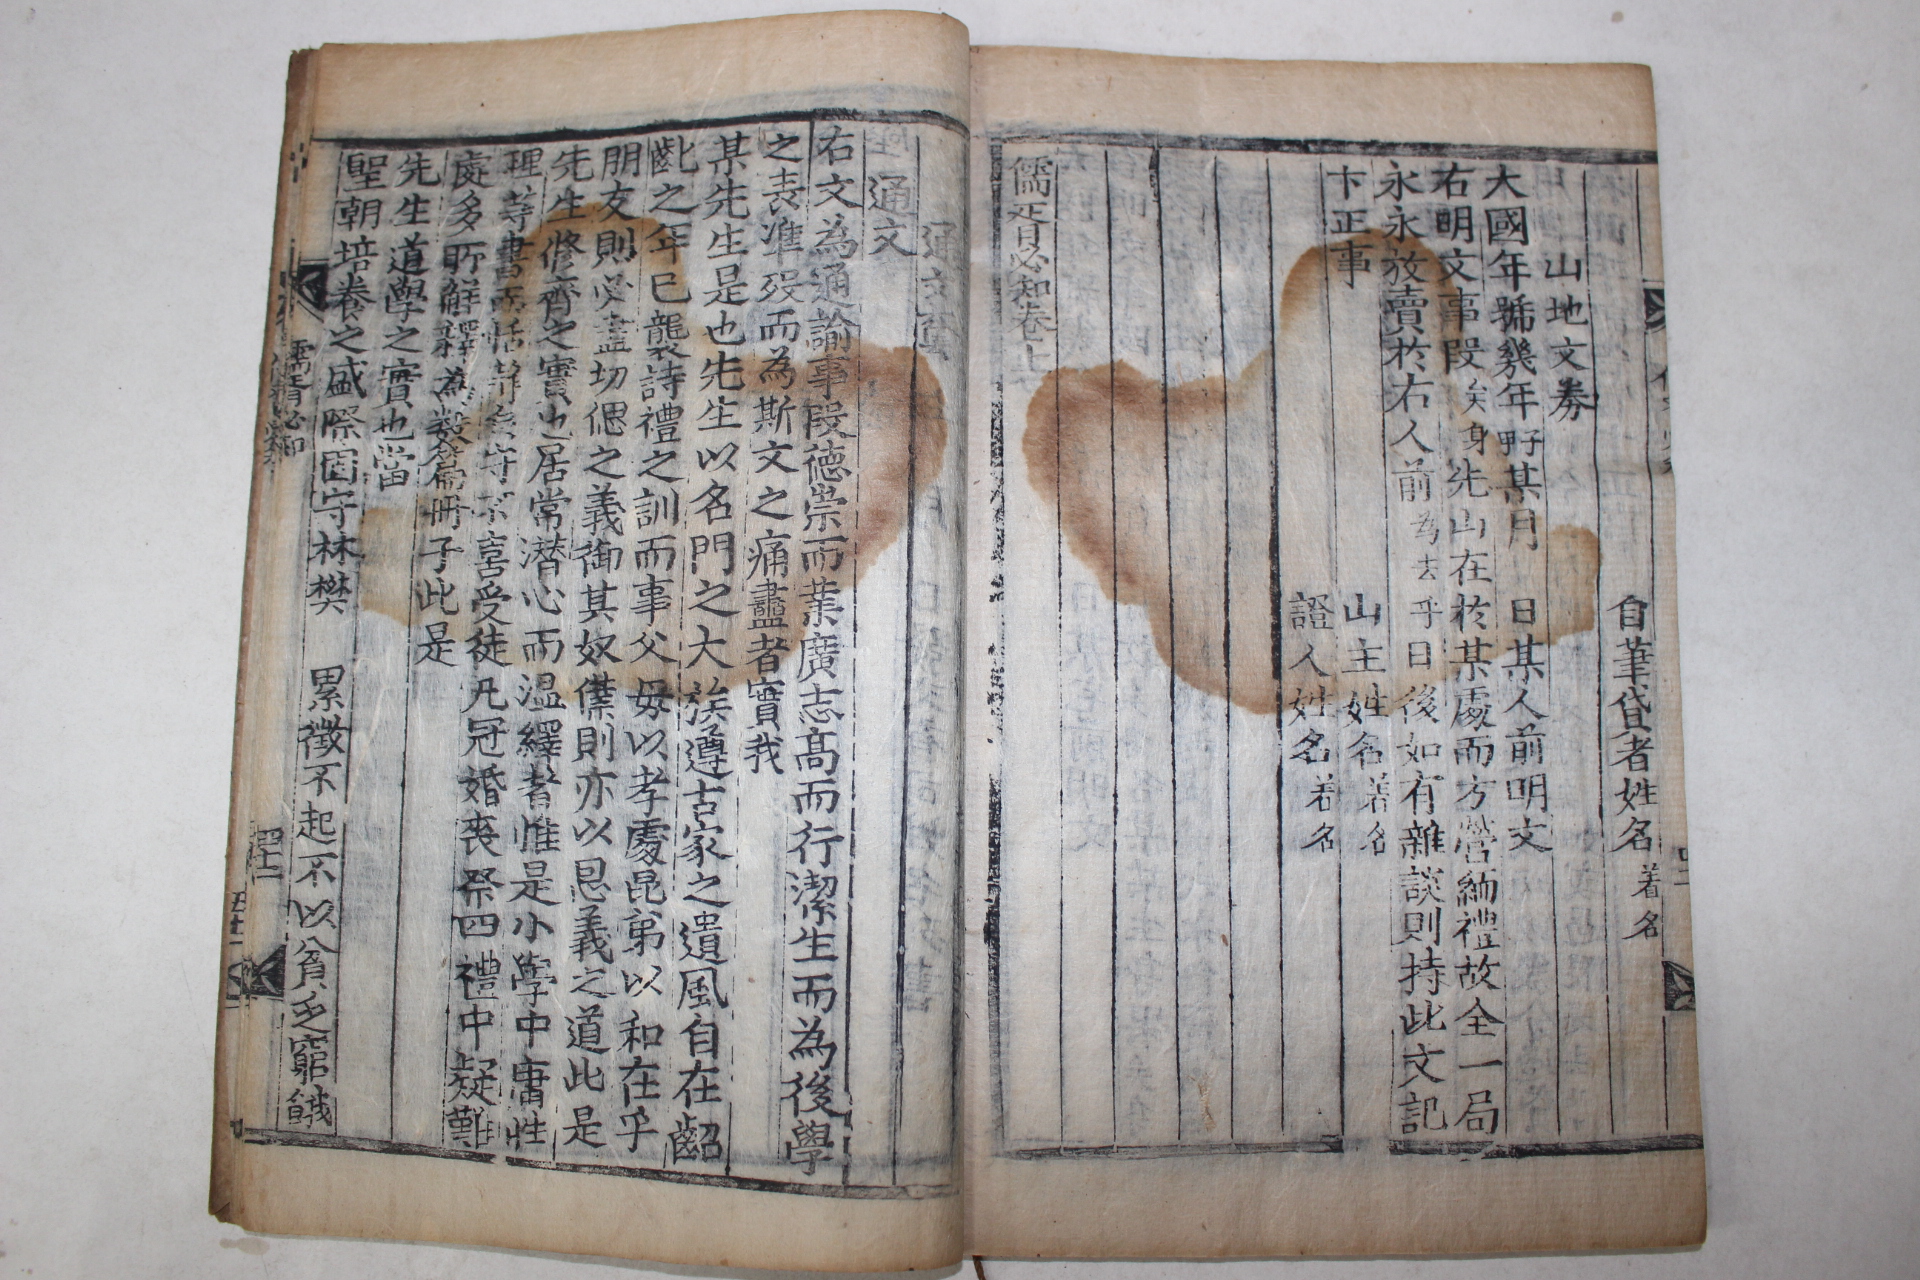 自筆貸者姓名着名
山地文券
大國年號幾年某月 日某人前明文
右明文事段矣身先山在於某處而方營緬禮故全一局
永永放賣於右人前為去乎日後如有雜談則持此文記
卞正事
山主姓名着名
證人姓名着名
儒胥必知卷上
通文套
通文
右文為通諭事段德崇而業廣志高而行潔生而為後學
之表準歿而為斯文之痛盡者實我
某先生是也先生以名門之大族遵古家之遺風自在齠
齔之年已襲詩禮之訓而事父母以孝處昆弟以和在乎
朋友則必盡切偲之義御其奴僕則亦以恩義之道此是
先生修齊之實也居常潛心而溫繹者惟是小學中庸性
理等書而恬靜自守不喜受徒凡冠婚喪祭四禮中疑難
處多所解釋為數篇冊子此是
先生道學之實也當
聖朝培養之盛際固守林樊 累徵不起不以貧乏窮餓
儒胥必知